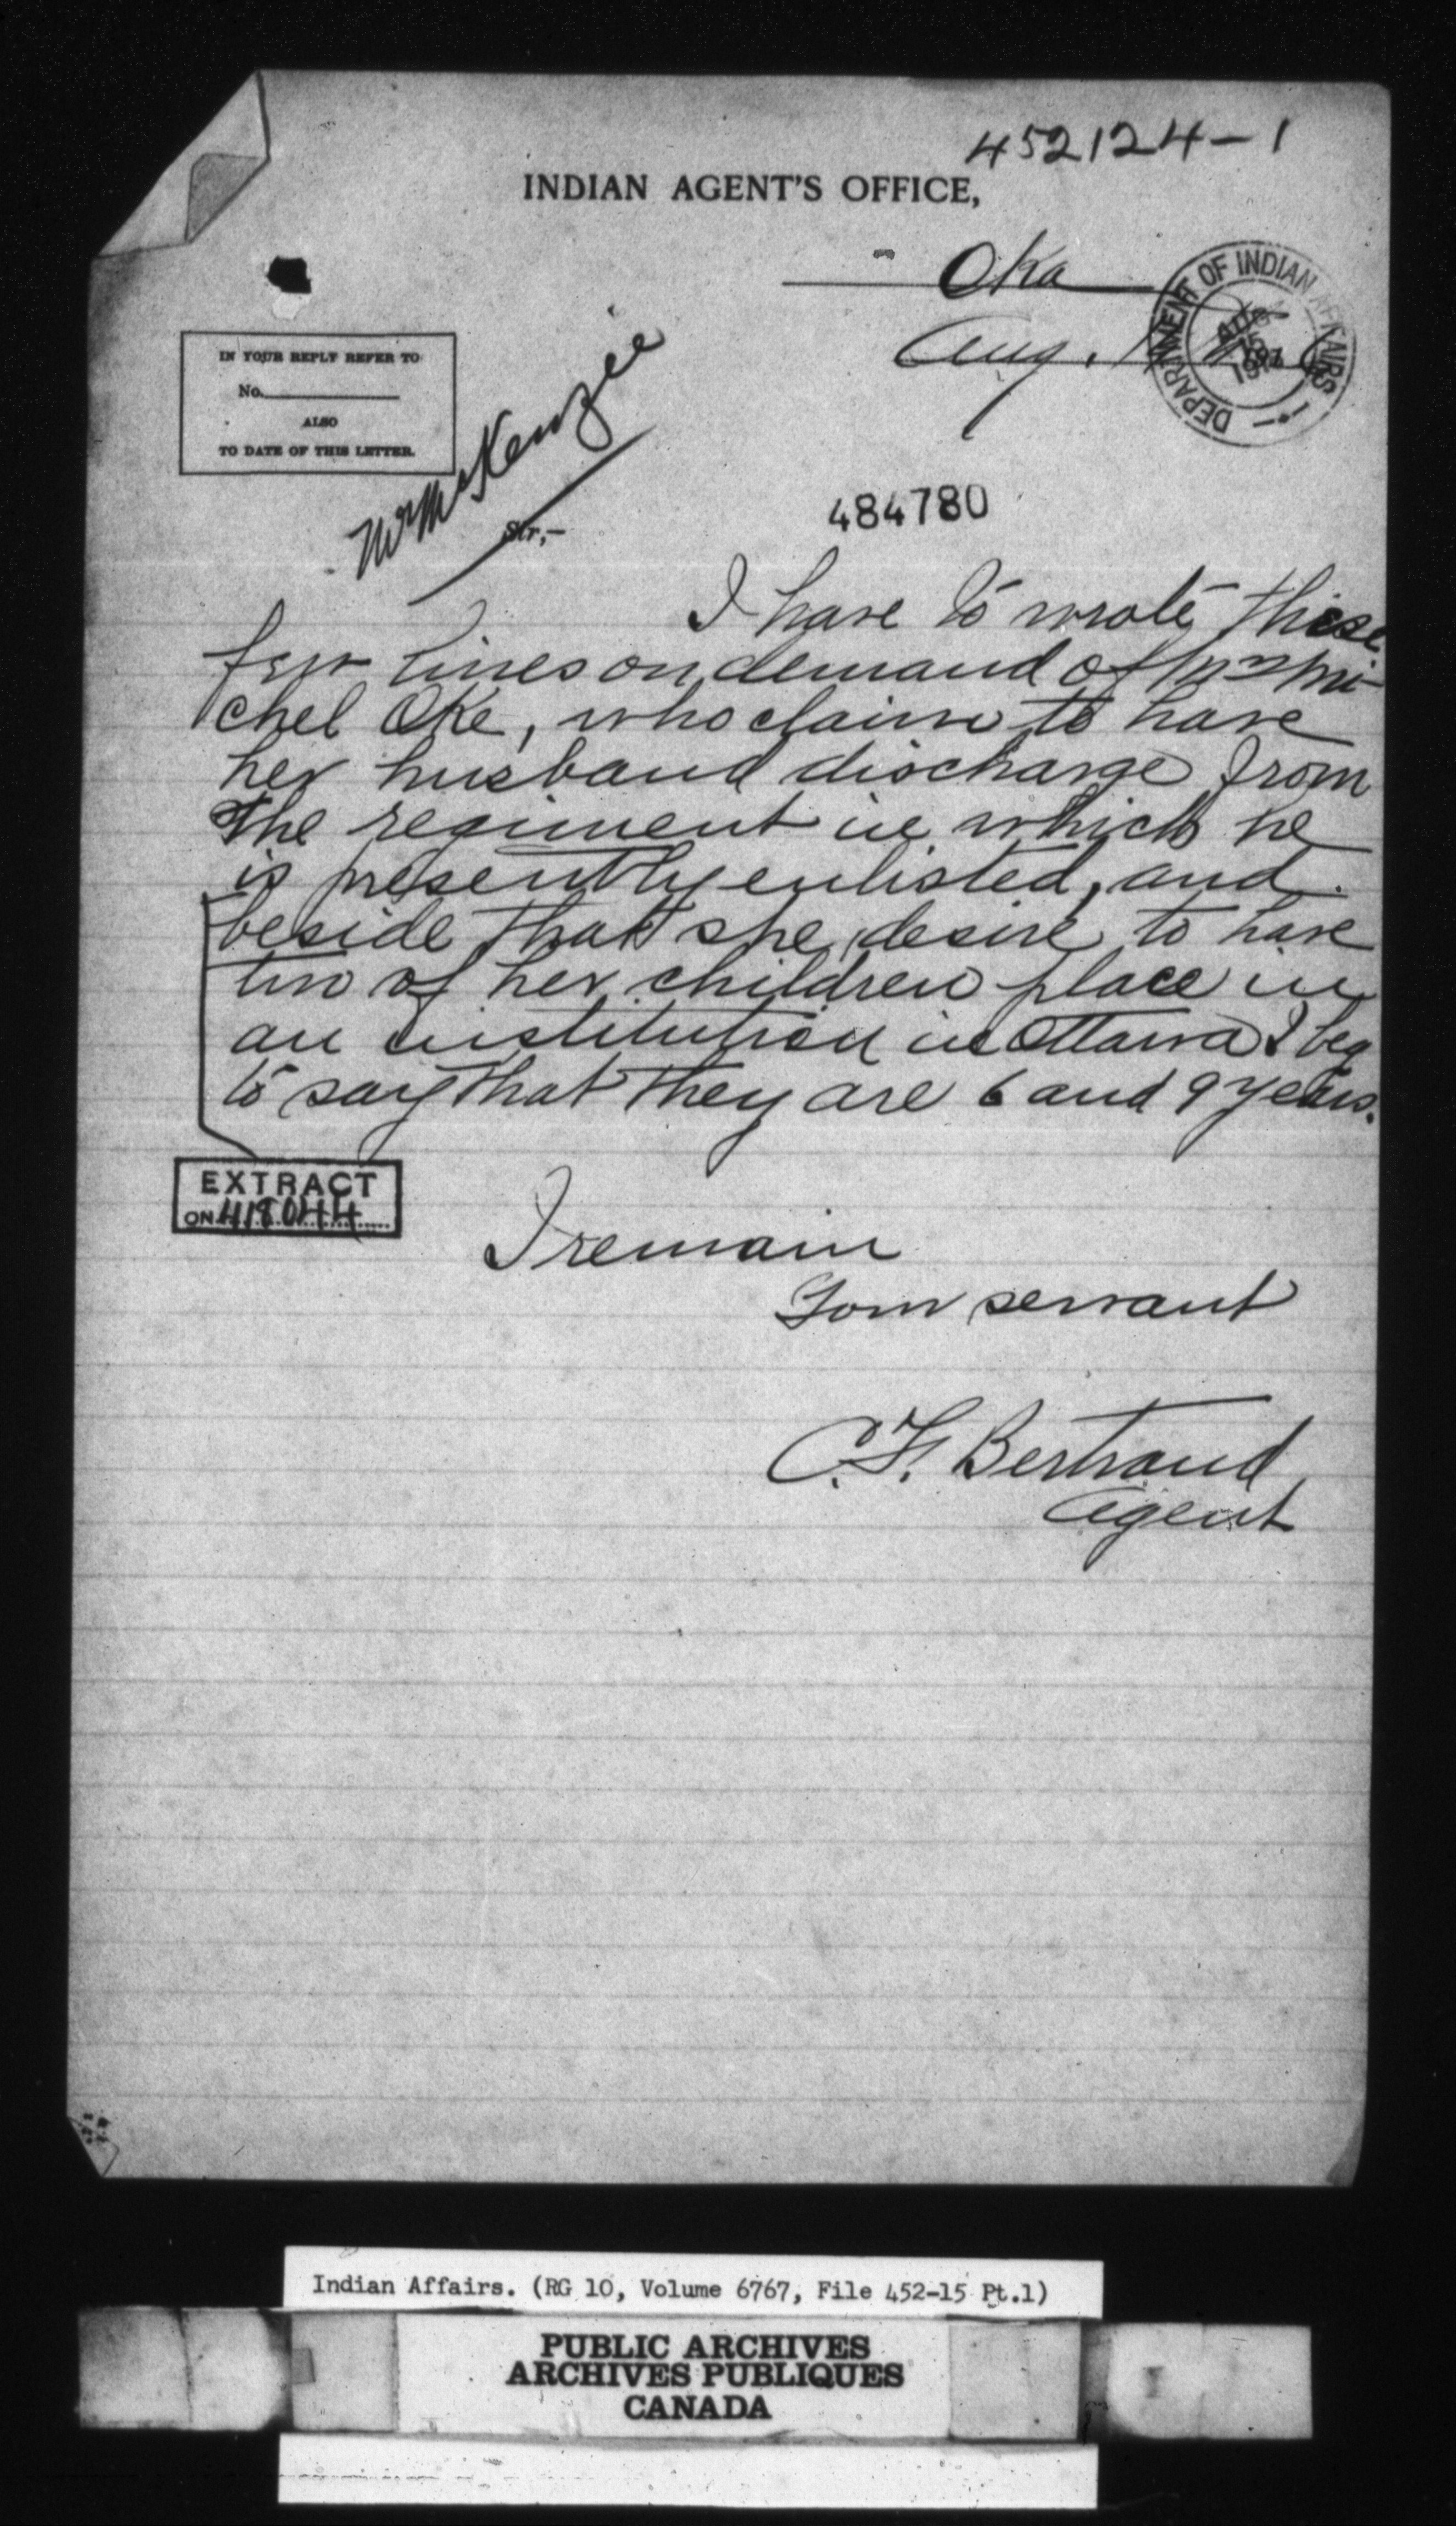 452124-1
INDIAN AGENT'S OFFICE,
Oka
Aug. 1
DEPARTMENT OF INDIAN AFFAIRS
AUG
IN YOUR REPLY REFER TO
No.
ALSO
TO DATE OF THIS LETTER.
Mr McKenzie
Sir,-
484780
I have to wrote these
few lines on demand of Mrs Mi-
chel Oke, who claim to have
her husband discharge from
the regiment in which he
is presently enlisted, and
beside that she desire to have
two of her children place in
an institution in Ottawa I beg
to say that they are 6 and 9 years.
EXTRACT
ON 418044
I remain
Your servant
C.F. Bertrand
Agent
Indian Affairs. (RG 10, Volume 6767, File 452-15 Pt.1)
PUBLIC ARCHIVES
ARCHIVES PUBLIQUES
CANADA